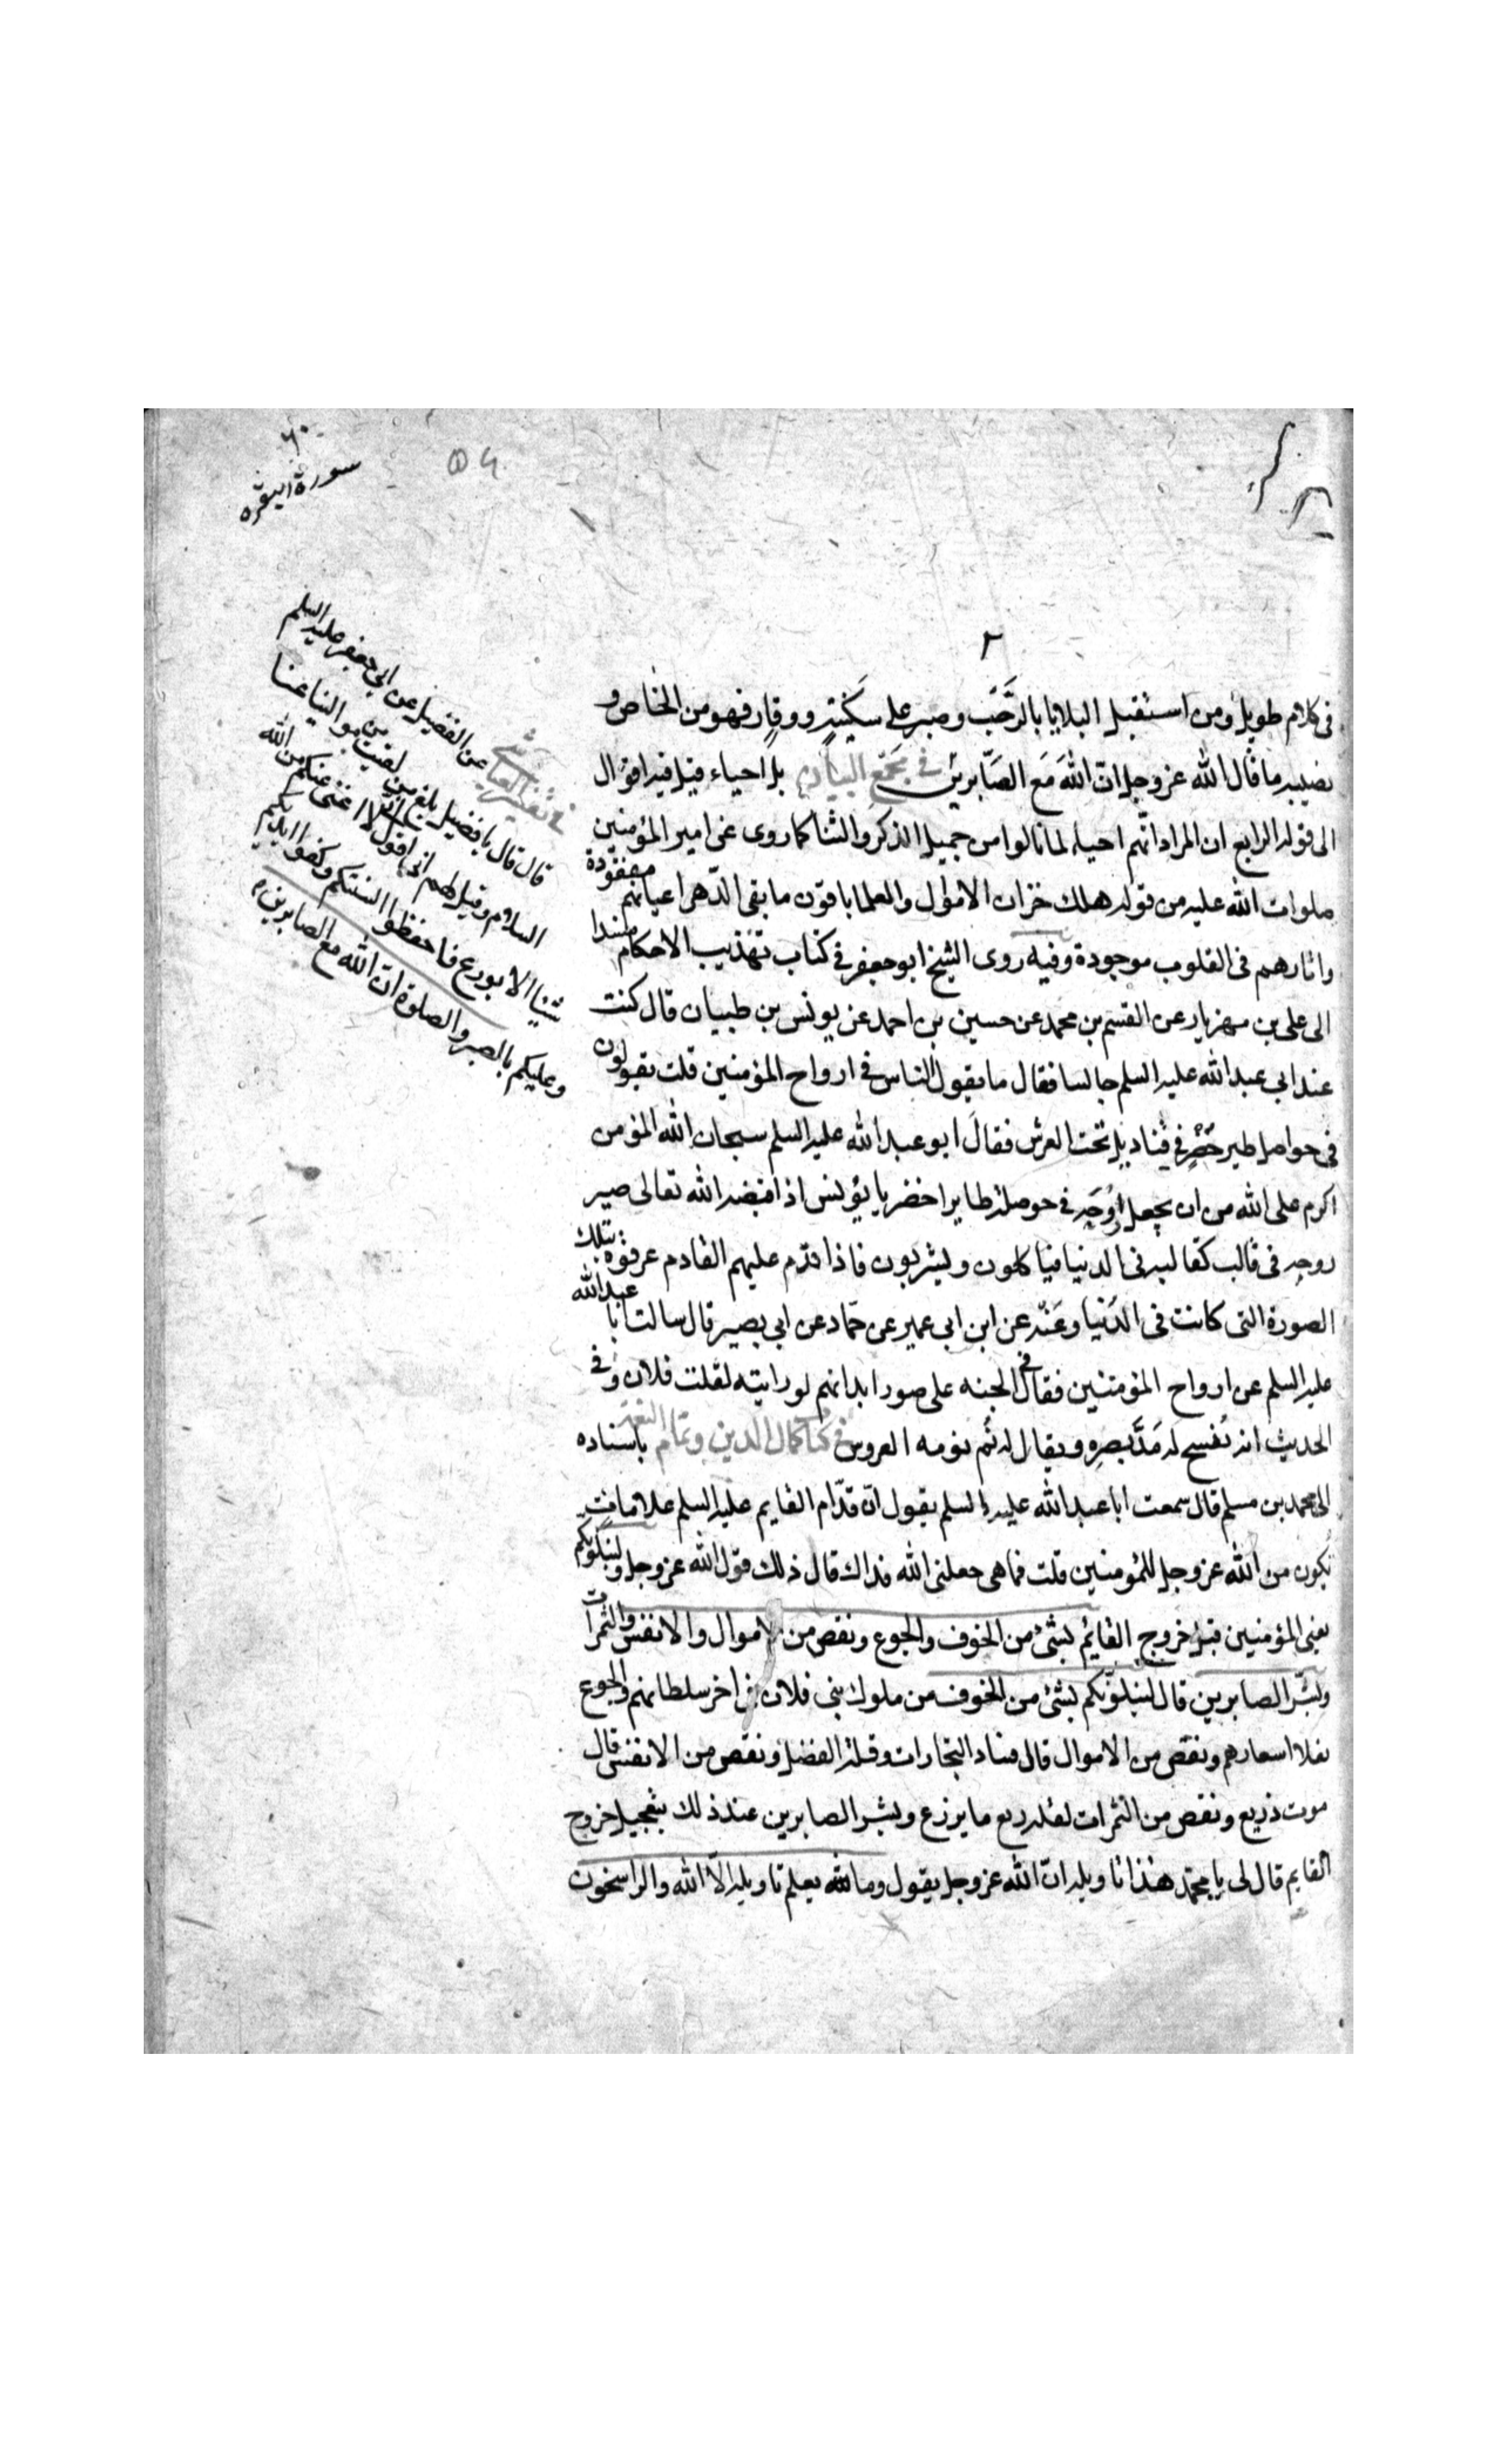 ٦٠
سورة البقره
٥٦
٢
فى كلام طويل ومن استقبل البلايا بالرَّحب وصبر على سكينةٍ ووقارٍ فهو من الخاص و
نصيبه ما قال الله عز وجل انّ اللهَ مَع الصّابرين فى مجمع البيان بل احياء قيل فيه اقوال
الى قوله الرابع ان المراد انّهم احياء لما نالوا من جميل الذكر والثنا كما روى عن امير المؤمنين
صلوات الله عليه من قوله هلك خزان الاموال والعلما باقون ما بقى الدّهر اعيانهم مفقودة
واثارهم فى القلوب موجودة وفيه روى الشيخ ابو جعفر فى كتاب تهذيب الاحكام مسندا
الى على بن مهزيار عن القسم بن محمد عن حسين بن احمد عن يونس بن ظبيان قال كنت
عند ابى عبد الله عليه السلم جالسا فقال ما يقول الناس فى ارواح المؤمنين قلت يقولون
فى حواصل طير خُضْرٍ فى قناديل تحت العرش فقال ابو عبد الله عليه السلم سبحان الله المؤمن
اكرم على الله من ان يجعل روحه فى حوصلة طاير اخضر يا يونس اذا قبضه الله تعالى صير
روحه فى قالب كقالبه فى الدنيا فياكلون ويشربون فاذا قدم عليهم القادم عرفوه بتلك
الصورة التى كانت فى الدنيا وعنه عن ابن ابى عمير عن حمّاد عن ابى بصير قال سالت ابا عبد الله
عليه السلم عن ارواح المؤمنين فقال فى الجنه على صور ابدانهم لو رايته لقلت فلان وفى
الحديث انه يُفسح له مَدَّ بصرِهِ ويقال له نَم نومه العروس فى كتاب كمال الدين وتمام النعمة باسناده
الى محمد بن مسلم قال سمعت ابا عبد الله عليه السلم يقول انّ قدّام القايم عليه السلم علامات
تكون من الله عز وجل للمؤمنين قلت فما هى جعلنى الله فداك قال ذلك قول الله عز وجل ولنبلونكم
يعنى المؤمنين قبل خروج القايم بشئ من الخوف والجوع ونقص من الاموال والانفس والثمرات
وبشّر الصابرين قال لنبلونّكم بشئ من الخوف من ملوك بنى فلان فى اخر سلطانهم والجوع
بغلا اسعارهم ونقص من الاموال قال فساد التجارات وقلة الفضل ونقص من الانفس قال
موت ذريع ونقص من الثمرات لقلة ريع ما يزرع وبشر الصابرين عند ذلك بتعجيل خروج
القايم قال لى يا محمّد هذا تاويله انّ الله عز وجل يقول وما يعلم تاويله الّا الله والراسخون
فى تفسير العياشى عن الفضيل عن ابى جعفر عليه السلم
قال قال يا فضيل بلغ من لقيت من موالينا عنا
السلام وقل لهم انى اقول لا اغنى عنكم من الله
شيئا الا بورع فاحفظوا السنتكم وكفوا ايديكم
وعليكم بالصبر والصلوة ان الله مع الصابرين